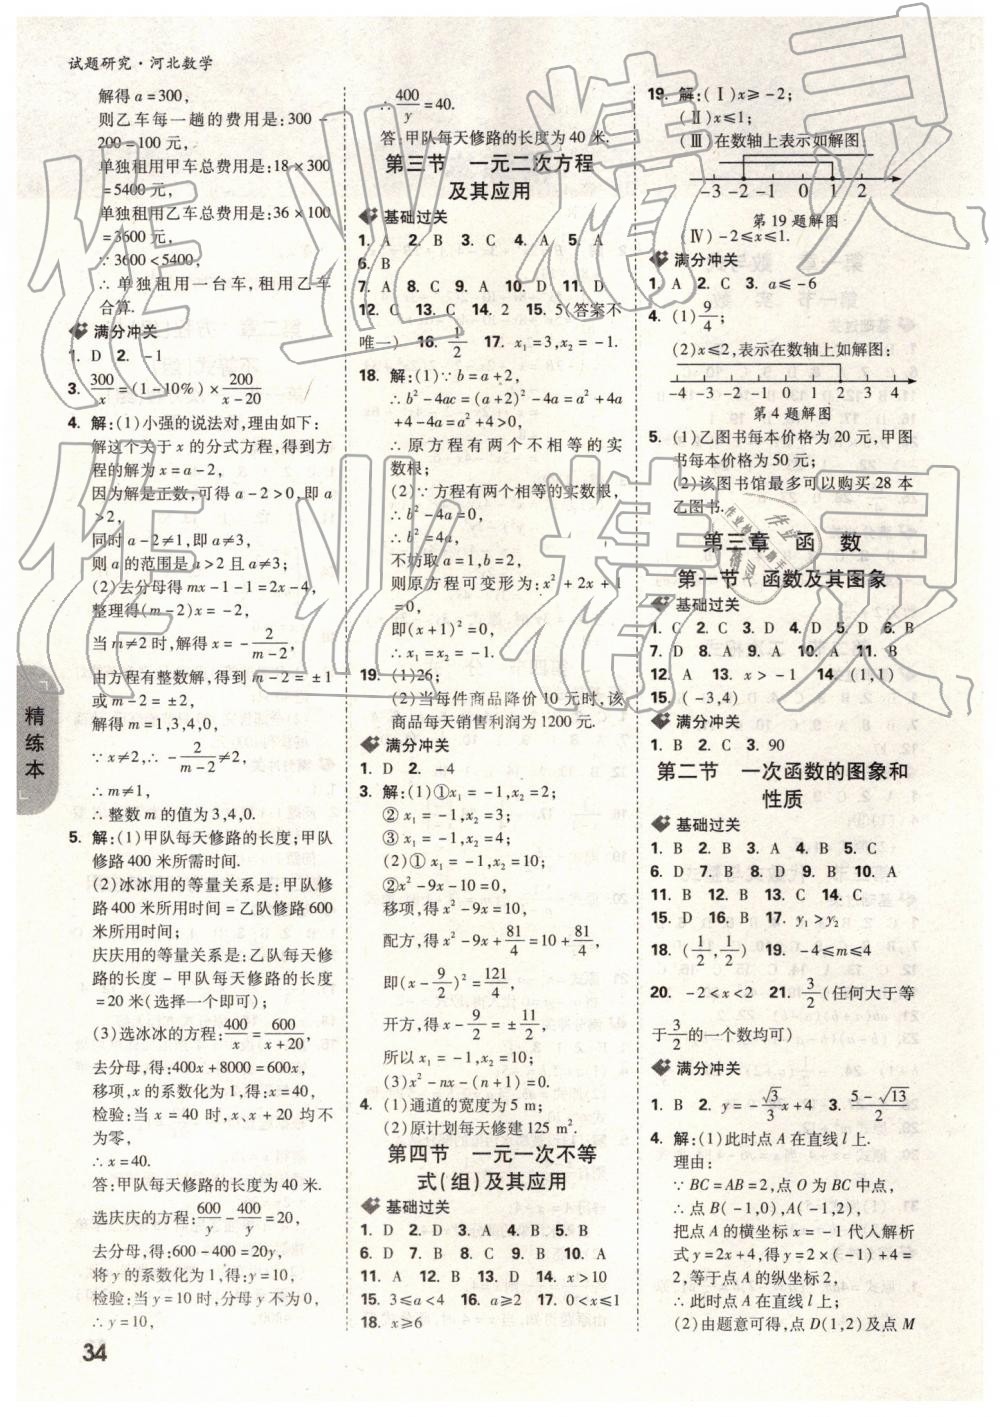 试题研究·河北数学
解得a=300,
则乙车每一趟的费用是:300-
200=100元,
单独租用甲车总费用是:18×300
=5400元,
单独租用乙车总费用是:36×100
=3600元,
∵3600<5400,
∴单独租用一台车,租用乙车
合算.
满分冲关
1. D 2. -1
3. 300/x=(1-10%)×200/(x-20)
4. 解:(1)小强的说法对,理由如下:
解这个关于x的分式方程,得到方
程的解为x=a-2,
因为解是正数,可得a-2>0,即a
>2,
同时a-2≠1,即a≠3,
则a的范围是a>2且a≠3;
(2)去分母得mx-1-1=2x-4,
整理得(m-2)x=-2,
当m≠2时,解得x=-2/(m-2),
由方程有整数解,得到m-2=±1
或m-2=±2,
解得m=1,3,4,0,
∵x≠2,∴-2/(m-2)≠2,
∴m≠1,
∴整数m的值为3,4,0.
5. 解:(1)甲队每天修路的长度;甲队
修路400米所需时间.
(2)冰冰用的等量关系是:甲队修
路400米所用时间=乙队修路600
米所用时间;
庆庆用的等量关系是:乙队每天修
路的长度-甲队每天修路的长度
=20米(选择一个即可);
(3)选冰冰的方程:400/x=600/(x+20),
去分母,得:400x+8000=600x,
移项,x的系数化为1,得:x=40,
检验:当x=40时,x、x+20均不
为零,
∴x=40.
答:甲队每天修路的长度为40米.
选庆庆的方程:600/y-400/y=20,
去分母,得:600-400=20y,
将y的系数化为1,得:y=10,
检验:当y=10时,分母y不为0,
∴y=10,
∴400/y=40.
答:甲队每天修路的长度为40米.
第三节 一元二次方程
及其应用
基础过关
1. A 2. B 3. C 4. A 5. A
6. B
7. A 8. C 9. A 10. D 11. D
12. C 13. C 14. 2 15. 5(答案不
唯一) 16. 1/2 17. x₁=3,x₂=-1.
18. 解:(1)∵b=a+2,
∴b²-4ac=(a+2)²-4a=a²+4a
+4-4a=a²+4>0,
∴原方程有两个不相等的实
数根;
(2)∵方程有两个相等的实数根,
∴b²-4a=0,
∴b²=4a,
不妨取a=1,b=2,
则原方程可变形为:x²+2x+1
=0,
即(x+1)²=0,
∴x₁=x₂=-1.
19. (1)26;
(2)当每件商品降价10元时,该
商品每天销售利润为1200元.
满分冲关
1. D 2. -4
3. 解:(1)①x₁=-1,x₂=2;
②x₁=-1,x₂=3;
③x₁=-1,x₂=4;
(2)①x₁=-1,x₂=10;
②x²-9x-10=0;
移项,得x²-9x=10,
配方,得x²-9x+81/4=10+81/4,
即(x-9/2)²=121/4,
开方,得x-9/2=±11/2,
所以x₁=-1,x₂=10;
(3)x²-nx-(n+1)=0.
4. (1)通道的宽度为5 m;
(2)原计划每天修建125 m².
第四节 一元一次不等
式(组)及其应用
基础过关
1. D 2. D 3. A 4. B 5. B
6. D 7. B 8. C 9. B 10. A
11. A 12. B 13. D 14. x>10
15. 3≤a<4 16. a≥2 17. 0<x≤1
18. x≥6
19. 解:(Ⅰ)x≥-2;
(Ⅱ)x≤1;
(Ⅲ)在数轴上表示如解图:
-3 -2 -1 0 1 2
第19题解图
(Ⅳ)-2≤x≤1.
满分冲关
1. A 2. C 3. a≤-6
4. (1)9/4;
(2)x≤2,表示在数轴上如解图:
-4 -3 -2 -1 0 1 2 3 4
第4题解图
5. (1)乙图书每本价格为20元,甲图
书每本价格为50元;
(2)该图书馆最多可以购买28本
乙图书.
第三章 函 数
第一节 函数及其图象
基础过关
1. C 2. C 3. D 4. D 5. D 6. B
7. D 8. A 9. A 10. A 11. B
12. A 13. x>-1 14. (1,1)
15. (-3,4)
满分冲关
1. B 2. C 3. 90
第二节 一次函数的图象和
性质
基础过关
1. B 2. B 3. A 4. B 5. C
6. D 7. B 8. D 9. B 10. A
11. B 12. B 13. C 14. C
15. D 16. B 17. y₁>y₂
18. (1/2,1/2) 19. -4≤m≤4
20. -2<x<2 21. 3/2(任何大于等
于3/2的一个数均可)
满分冲关
1. B 2. y=-√3/3x+4 3. (5-√13)/2
4. 解:(1)此时点A在直线l上.
理由:
∵BC=AB=2,点O为BC中点,
∴点B(-1,0),A(-1,2),
把点A的横坐标x=-1代入解析
式y=2x+4,得y=2×(-1)+4=
2,等于点A的纵坐标2,
∴此时点A在直线l上;
(2)由题意可得,点D(1,2)及点M
精练本
34
作业精灵
作业精灵